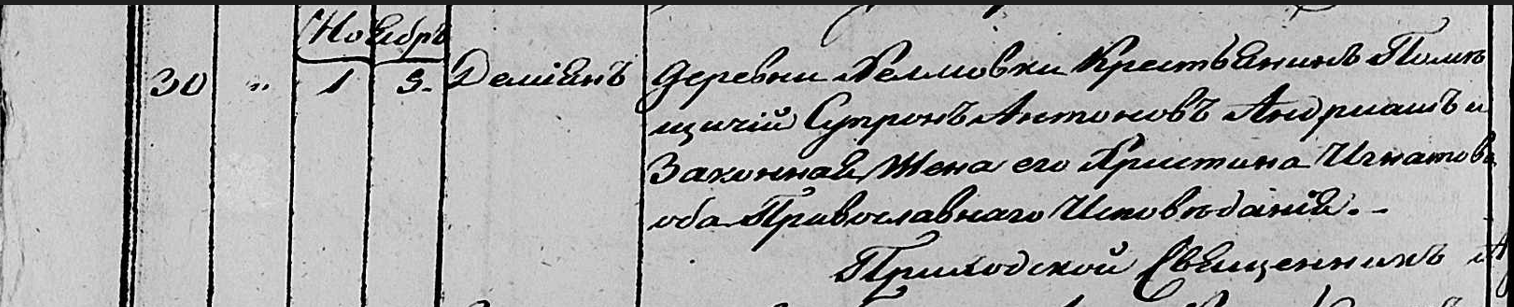 Ноябрь
30 " 1 3. Деміянъ Деревни Хелмовки Крестьянинъ Помѣ
щичій Супронъ Антоновъ Андриашъ и
Законная Жена его Христина Игнатова
оба Православнаго Исповѣданія. -
Приходской Священникъ